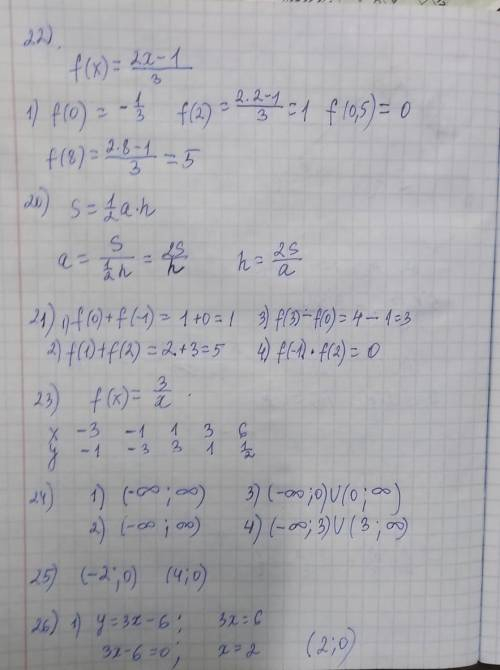 22).
f(x) = (2x-1)/3
1) f(0) = -1/3   f(2) = (2·2-1)/3 = 1   f(0,5) = 0
f(8) = (2·8-1)/3 = 5
20) S = 1/2 a·h
a = S/(1/2 h) = 2S/h   h = 2S/a
21) 1) f(0)+f(-1) = 1+0=1   3) f(3)-f(0) = 4-1=3
2) f(1)+f(2) = 2+3=5   4) f(-1)·f(2) = 0
23) f(x) = 3/x
x -3 -1 1 3 6
y -1 -3 3 1 1/2
24) 1) (-∞; ∞)   3) (-∞;0)∪(0;∞)
2) (-∞; ∞)   4) (-∞;3)∪(3;∞)
25) (-2;0)   (4;0)
26) 1) y=3x-6;   3x=6
3x-6=0;   x=2   (2;0)